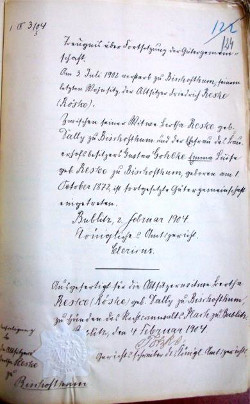 IV 3/04
5
122
Zeugnis über Fortsetzung der Gütergemein-
schaft.
Am 3. Juli 1902 verstarb zu Bischofthum, seinem
letzten Wohnsitz, der Altsitzer Friedrich Reske
(Röske).
Zwischen seiner Witwe Bertha Reske geb.
Dally zu Bischofthum und der Ehefrau des
Gustav Emma Luise
geb. Reske zu Bischofthum, geboren am 1
October 1872, ist fortgesetzte Gütergemeinschaft
eingetreten.
Bublitz, 2. Februar 1904.
Königliches Amtsgericht.
Ausgefertigt für die Altsitzerwitwe Bertha
Reske (Röske) geb. Dally zu Bischofthum
zu Händen des Rechtsanwalts
Bublitz, den 4 Februar 1904
Gerichtsschreiber des Königl. Amtsgerichts
Reske
zu
Bischofthum